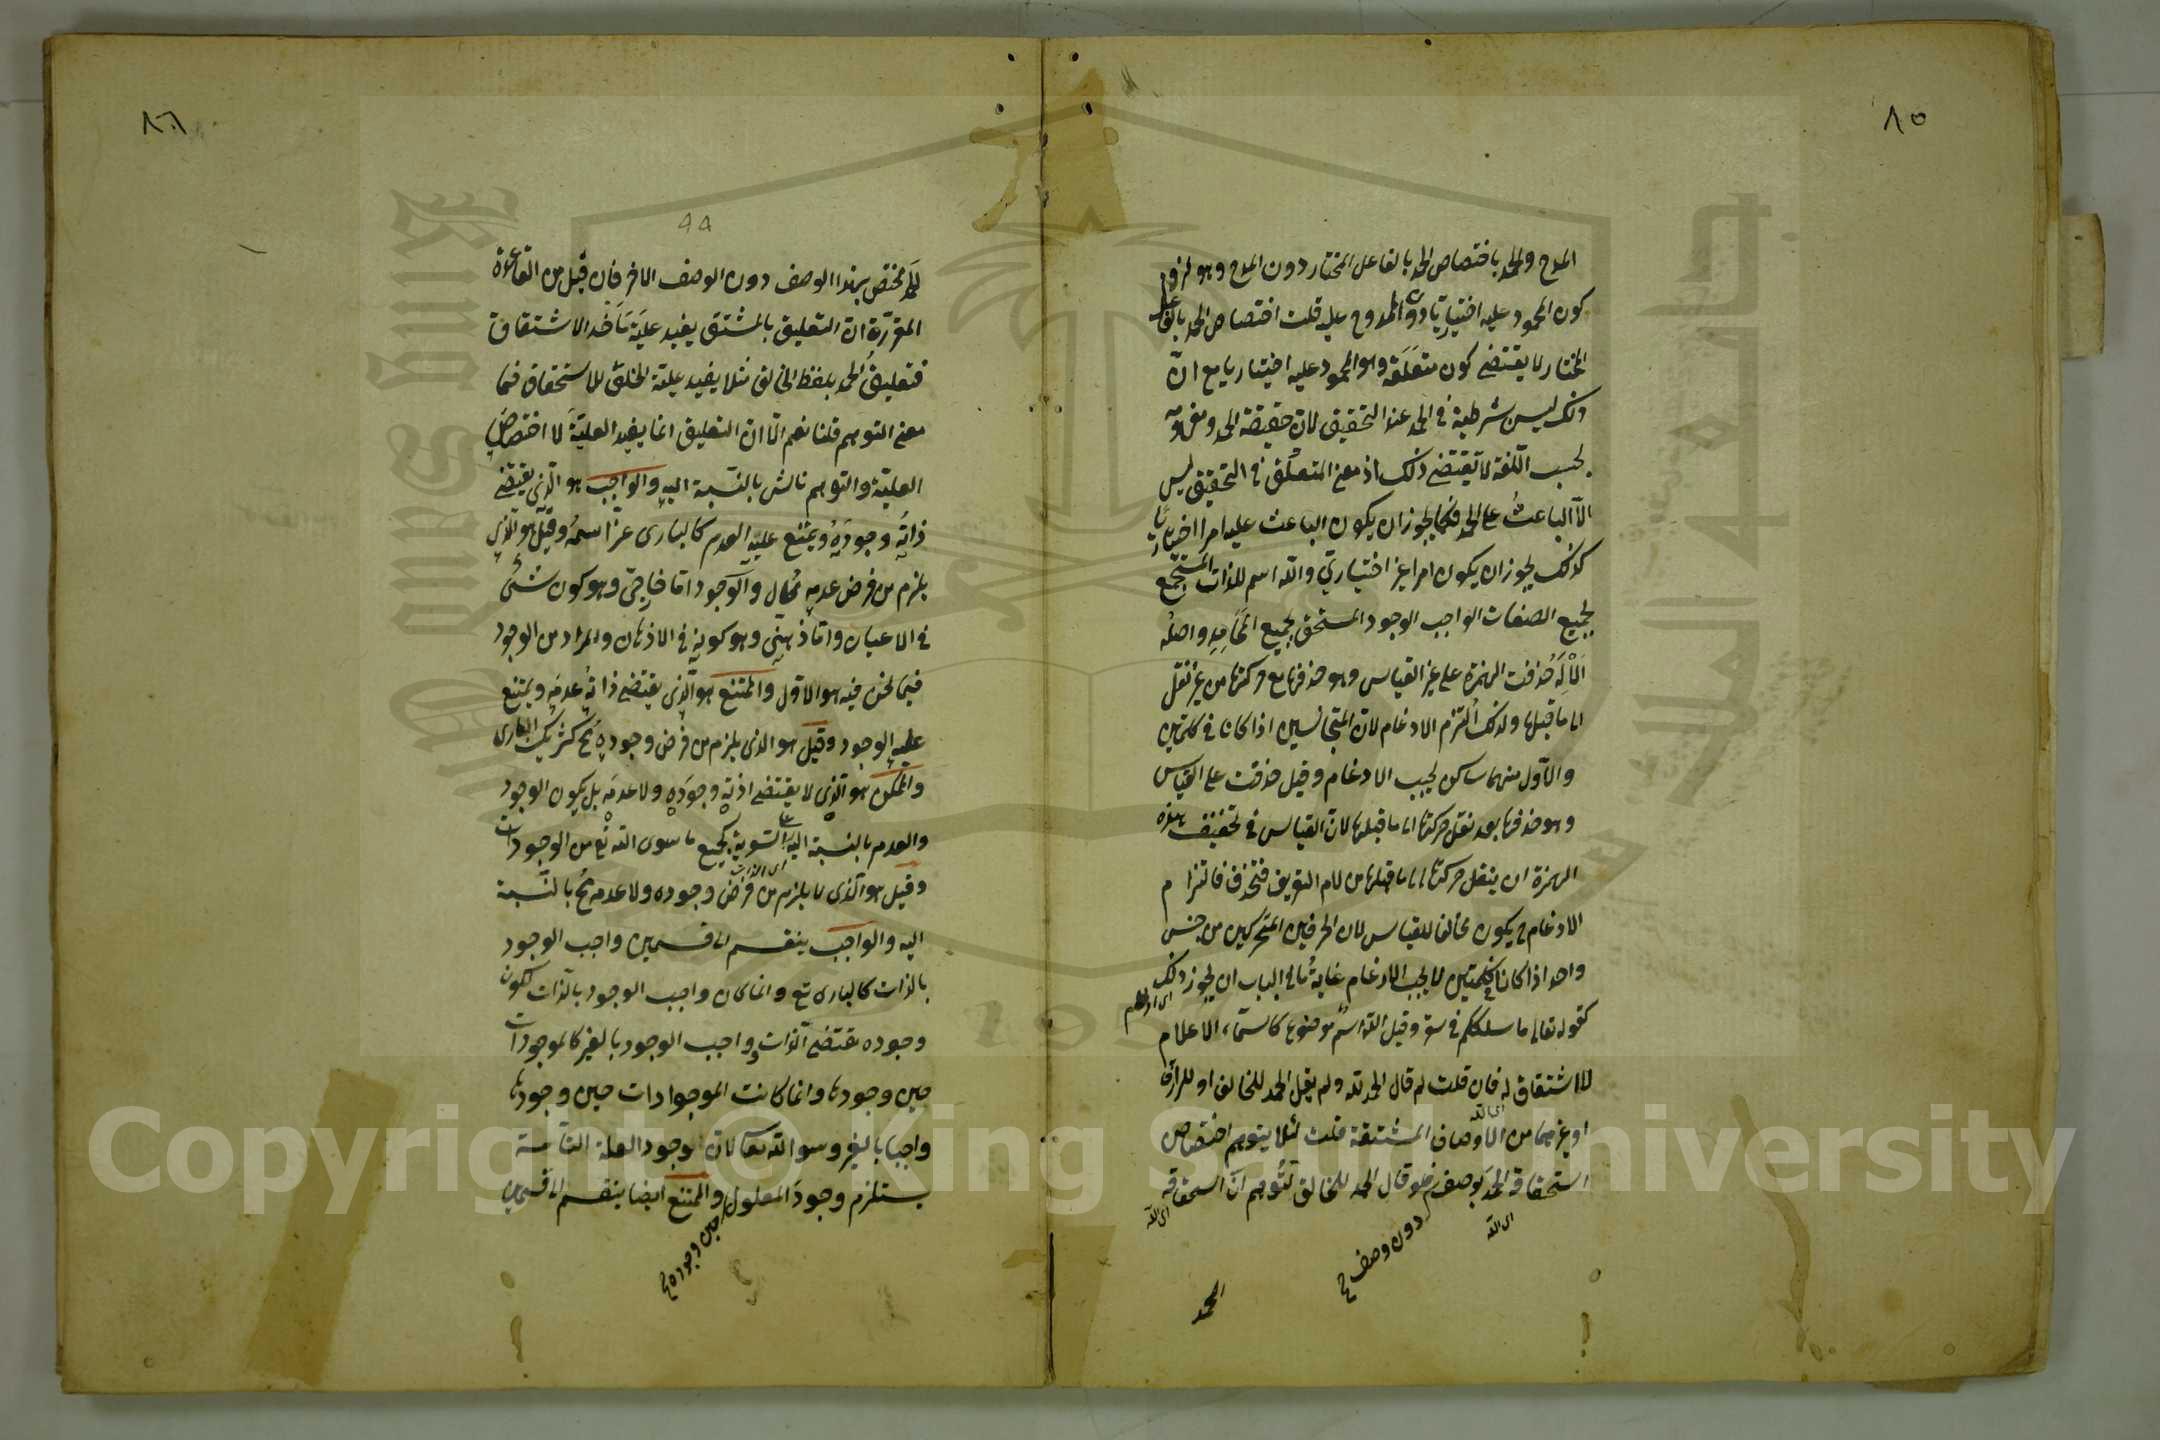 ٨٥
المدح والحمد باختصاص الحمد بالفاعل المختار دون المدح وهو
كون المحمود عليه اختياريا دون الممدوح عليه قلت اختصاص الحمد بالفاعل
المختار لا يقتضى كون متعلقه وهو المحمود عليه اختياريا مع ان
ذلك ليس شرطية فى الحمد عند التحقيق لان حقيقة الحمد ومفهومه
بحسب اللغة لا تقتضى ذلك اذ معنى المتعلق فى التحقيق ليس
الا الباعث على الحمد فكما يجوز ان يكون الباعث عليه امرا اختياريا
كذلك يجوز ان يكون امرا غير اختياري والله اسم للذات المستجمع
لجميع الصفات الواجب الوجود المستحق لجميع المحامد واصله
الاله حذفت الهمزة على غير القياس وهو حذفها مع حركتها من غير نقل
الى ما قبلها ولذلك التزم الادغام لان المتجانسين اذا كانا فى كلمتين
والاول منهما ساكن يجب الادغام وقيل حذفت على القياس
وهو حذفها بعد نقل حركتها الى ما قبلها لان القياس فى تخفيف هذه
الهمزة ان ينقل حركتها الى ما قبلها من لام التعريف فتحذف فالتزام
الادغام ح يكون مخالفا للقياس لان الحرفين المتحركين من جنس
واحد اذا كانا فى كلمتين لا يجب الادغام غاية ما فى الباب ان يجوز ذلك
اى الادغام
كقوله تعالى ما سلككم فى سقر وقيل الله اسم موضوع كاسماء الاعلام
لا اشتقاق له فان قلت لم قال الحمد لله ولم يقل الحمد للخالق او للرازق
او غيرهما من الاوصاف المشتقة قلت لئلا يتوهم اختصاص
اى الله
استحقاقه الحمد بوصف فلو قال الحمد للخالق لتوهم ان استحقاقه
اى الله
اى الله
دون وصف
الحمد
٨٦
٩٩
للحمد مختص بهذا الوصف دون الوصف الاخر فان قيل من القاعدة
المقررة ان التعليق بالمشتق يفيد علية مأخذ الاشتقاق
فتعليق الحمد بلفظ الخالق مثلا يفيد علية الخلق للاستحقاق فما
معنى التوهم قلنا نعم الا ان التعليق انما يفيد العلية لا اختصاص
العلية والتوهم ناش بالنسبة اليه والواجب هو الذى يقتضى
ذاته وجوده ويمتنع عليه العدم كالبارى عز اسمه وقيل هو الذى
يلزم من فرض عدمه محال والوجود اما خارجى وهو كون شئ
فى الاعيان واما ذهنى وهو كونه فى الاذهان والمراد من الوجود
فيما نحن فيه هو الاول والممتنع هو الذى يقتضى ذاته عدمه ويمتنع
عليه الوجود وقيل هو الذى يلزم من فرض وجوده مح كشريك البارى
والممكن هو الذى لا يقتضى ذاته وجوده ولا عدمه بل يكون الوجود
والعدم بالنسبة اليه على السوية كجميع ما سوى الله تع من الوجودات
وقيل هو الذى لا يلزم من فرض وجوده ولا عدمه مح بالنسبة
اليه والواجب ينقسم الى قسمين واجب الوجود
بالذات كالبارى تع وانما كان واجب الوجود بالذات لكون
وجوده مقتضى الذات وواجب الوجود بالغير كالموجودات
حين وجودها وانما كانت الموجوادات حين وجودها
واجبا بالغير وسو الله تعا لان وجود العلة التامة
يستلزم وجود المعلول والممتنع ايضا ينقسم الى قسمين
حين وجوده